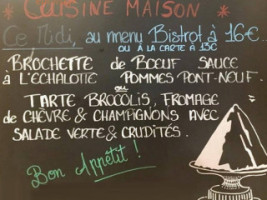 * CUISINE MAISON *
Ce Midi, au menu Bistrot à 16€...
OU À LA CARTE À 13€
BROCHETTE DE BOEUF SAUCE
À L'ECHALOTIE POMMES PONT-NEUF.
OU
TARTE BROCOLIS, FROMAGE
DE CHÈVRE & CHAMPIGNONS AVEC
SALADE VERTE & CRUDITÉS.
Bon Appétit !